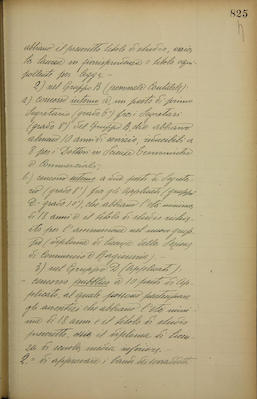 825
abbiano il prescritto titolo di studio, ossia
la laurea in giurisprudenza o titolo equi-
pollente per legge.-
2) nel Gruppo B (personale Contabile):
a) concorso interno a un posto di primo
Segretario (grado 6°) fra i Segretari
(grado 8°) del Gruppo B, che abbiano
almeno 10 anni di servizio, riducibili a
8 per i Dottori in Scienze Economiche
o Commerciali;
b) concorso interno a due posti di Segreta-
rio (grado 8°) fra gli Applicati (gruppo
grado 10°), che abbiano l'età minima
di 18 anni e il titolo di studio richie-
sto per l'ammissione nel nuovo grup-
po (diploma di
di Commercio o Ragioneria).-
3) nel Gruppo (Applicati):
concorso pubblico a 10 posti di Ap-
plicato, al quale possono partecipare
gli che abbiano l'età mini-
ma di 18 anni e il titolo di studio
prescritto, ossia il diploma di licen-
za di scuola media inferiore.
2°- di approvare i bandi dei